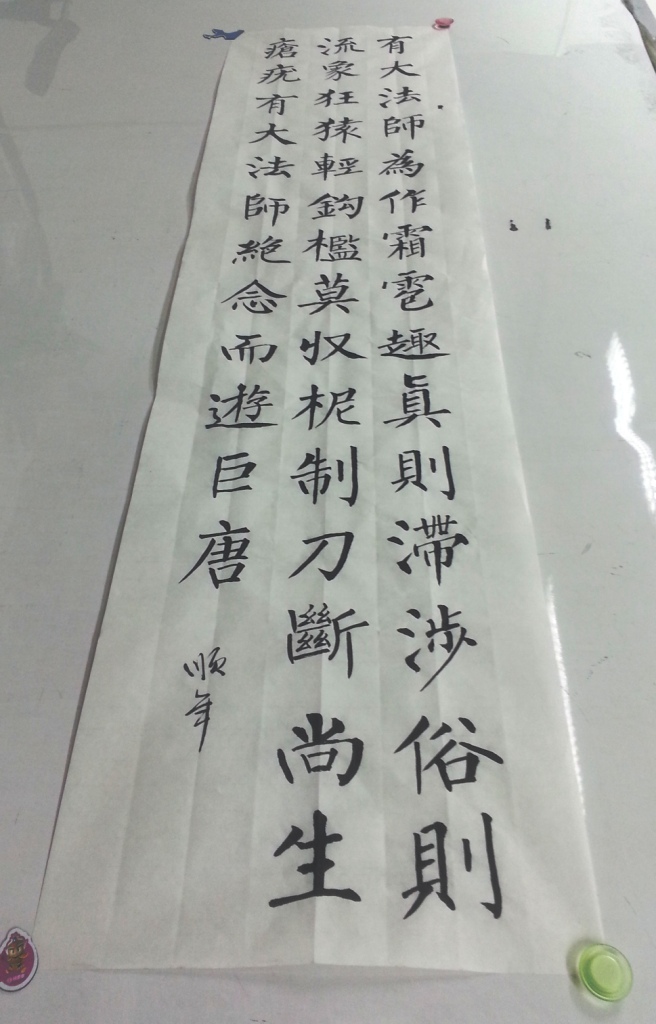 有大法師為作霜雹趣真則滯涉俗則
流象狂猿輕鈎檻莫収柅制刀斷尚生
瘡疣有大法師絕念而遊巨唐
順年